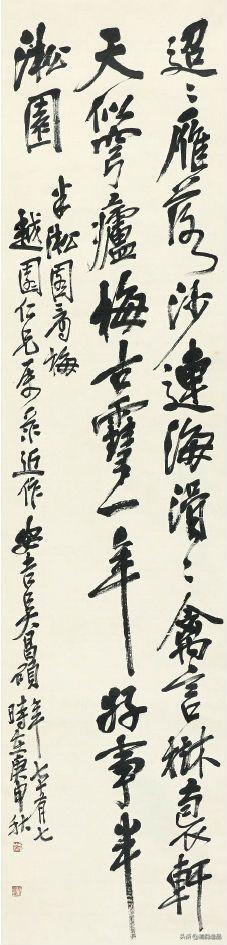 迢〻雁落沙連海滑〻禽言裹軒
天似穹廬梅古雪一年好事半
淞園
半淞園看梅
越園仁兄屬錄近作安吉吳昌碩年七十有七
時在庚申秋